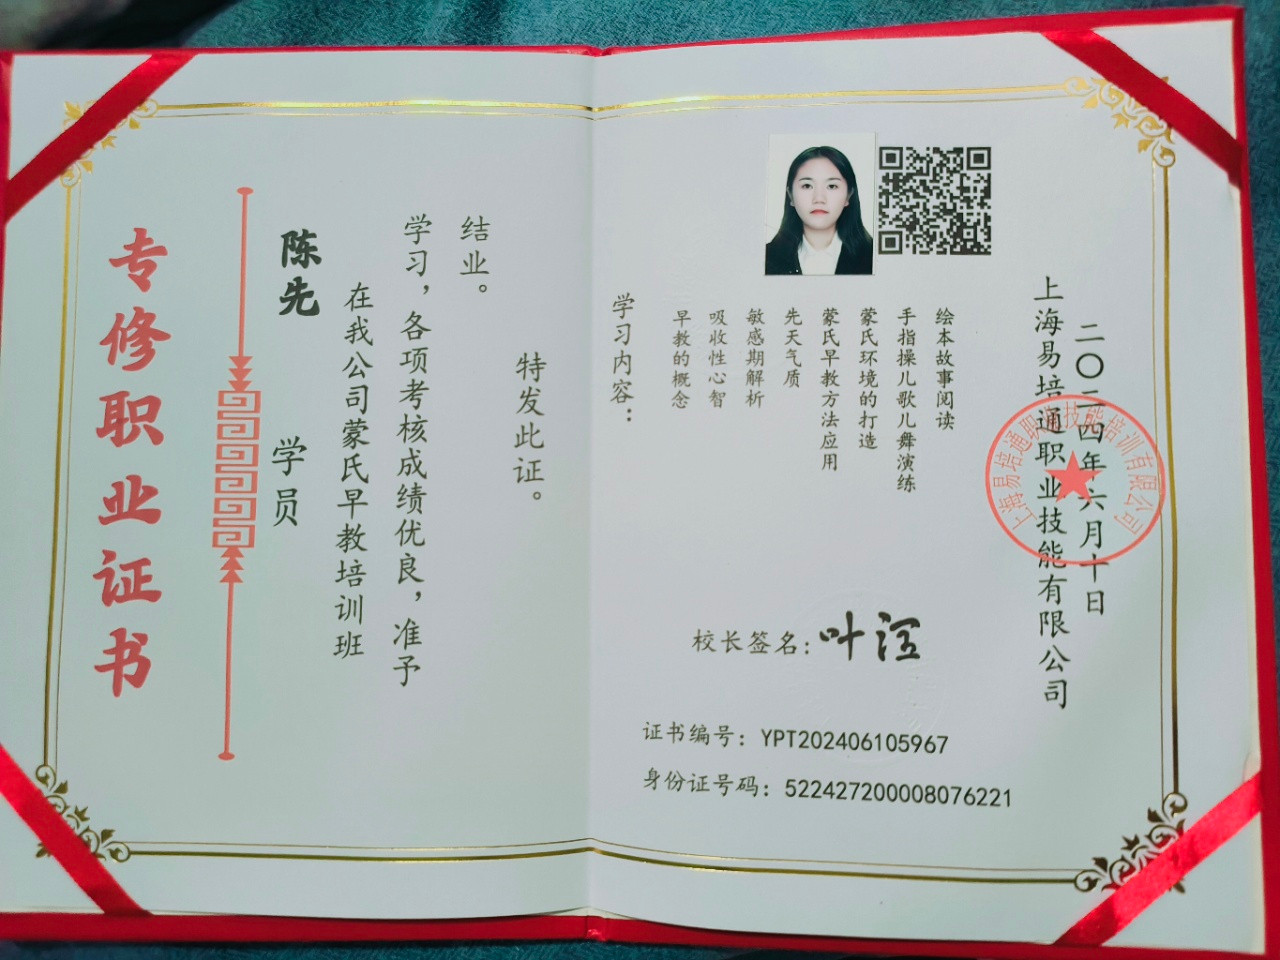 专修职业证书
陈先 学员
在我公司蒙氏早教培训班
学习，各项考核成绩优良，准予
结业。
特发此证。
学习内容：
早教的概念
吸收性心智
敏感期解析
先天气质
蒙氏早教方法应用
蒙氏环境的打造
手指操儿歌儿舞演练
绘本故事阅读
校长签名：
证书编号：YPT202406105967
身份证号码：522427200008076221
上海易培通职业技能有限公司
二〇二四年六月十日
上海易培通职业技能培训有限公司